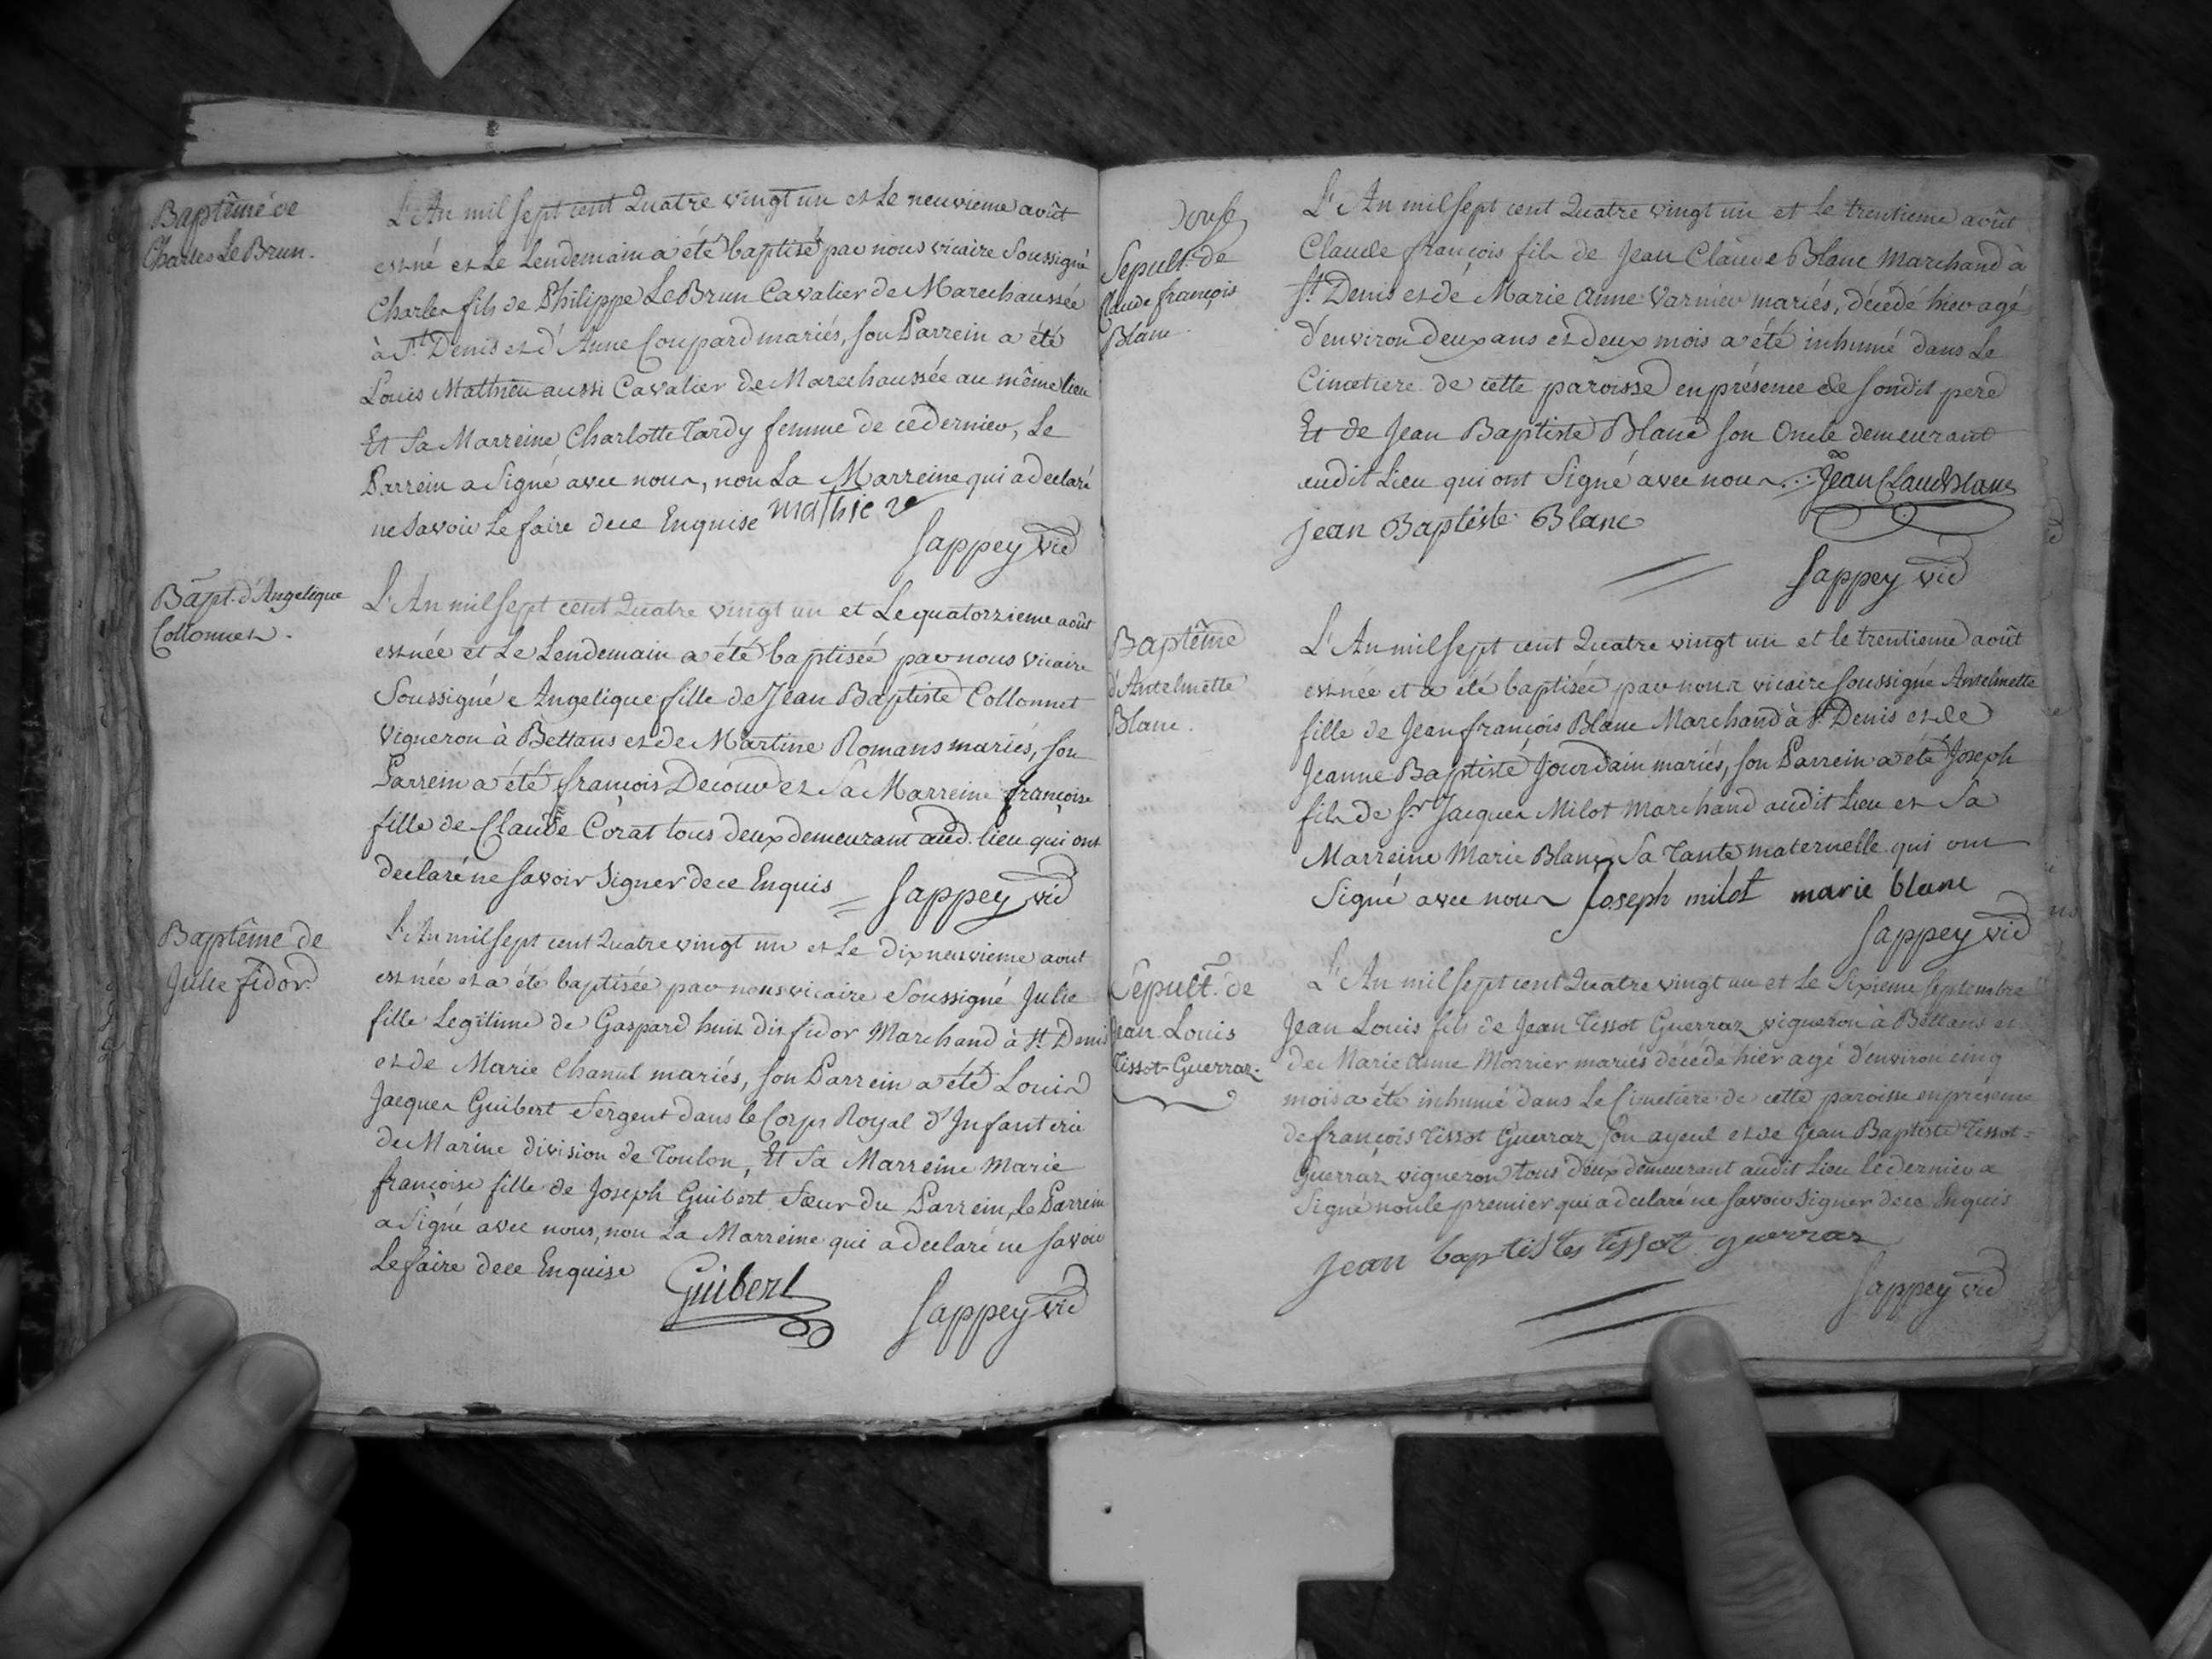 Baptême de
Charles Le Brun.
L'An mil sept cent Quatre vingt un et Le neuvieme août
est né et Le Lendemain a été baptisé par nous vicaire Soussigné
Charles fils de Philippe Le Brun Cavalier de Marechaussée
à St Denis et d'Anne Coupard mariés, son Parrein a été
Louis Mathieu aussi Cavalier de Marechaussée au même lieu
Et Sa Marreine Charlotte Tardy femme de ce dernier, Le
Parrein a Signé avec nous, non La Marreine qui a declaré
ne Savoir Le faire de ce Enquise mathieu
Sappey vic
Bapt. d'Angelique
Collonnet.
L'An mil sept cent Quatre vingt un et Le quatorzieme août
est née et Le Lendemain a été baptisée par nous Vicaire
Soussigné e Angelique fille de Jean Baptiste Collonnet
Vigneron à Bettans et de Martine Romans mariés, son
Parrein a été françois Decour et Sa Marreine françoise
fille de Claude Corat tous deux demeurant aud. lieu qui ont
declaré ne Savoir Signer de ce Enquis Sappey vic
Baptême de
Julie fidor.
L'An mil sept cent Quatre vingt un et Le dix neuvieme aout
est née et a été baptisée par nous vicaire Soussigné Julie
fille Legitime de Gaspard huit dit fidor Marchand à St. Denis
et de Marie Chanel mariés, son Parrein a été Louis
Jacques Guibert Sergent dans le Corps Royal d'Infanterie
de Marine division de Toulon, Et Sa Marreine Marie
françoise fille de Joseph Guibert Sœur du Parrein, Le Parrein
a Signé avec nous, non La Marreine qui a declaré ne Savoir
Le faire de ce Enquise
Guibert Sappey vic
Sepult. de
Claude françois
Blanc.
L'An mil sept cent Quatre vingt un et Le trentieme août
Claude françois fils de Jean Claude Blanc Marchand à
St. Denis et de Marie Anne Varnier mariés, décédé hier agé
d'environ deux ans et deux mois a été inhumé dans Le
Cimetiere de cette paroisse en présence de Sondit pere
Et de Jean Baptiste Blanc Son Oncle demeurant
audit Lieu qui ont Signé avec nous... Jean Claude Blanc
Jean Baptiste Blanc
Sappey vic
Baptême
d'Antelmette
Blanc.
L'An mil sept cent Quatre vingt un et le trentieme août
est née et a été baptisée par nous vicaire Soussigné Antelmette
fille de Jean françois Blanc Marchand à St. Denis et de
Jeanne Baptiste Jourdain mariés, son Parrein a été Joseph
fils de Sr. Jacques Milot Marchand audit Lieu et Sa
Marreine Marie Blanc Sa Tante maternelle qui ont
Signé avec nous Joseph milot marie blanc
Sappey vic
Sepult. de
Jean Louis
Tissot-Guerraz.
L'An mil sept cent Quatre vingt un et Le Sixieme Septembre
Jean Louis fils de Jean Tissot Guerraz vigneron à Bettans et
de Marie Anne Morrier mariés décédé hier agé d'environ cinq
mois a été inhumé dans Le Cimetiere de cette paroisse en présence
de françois Tissot Guerraz son ayeul et de Jean Baptiste Tissot=
Guerraz vigneron tous deux demeurant audit Lieu le dernier a
Signé non le premier qui a declaré ne Savoir Signer de ce Enquis
Jean baptistes tissot guerraz
Sappey vic